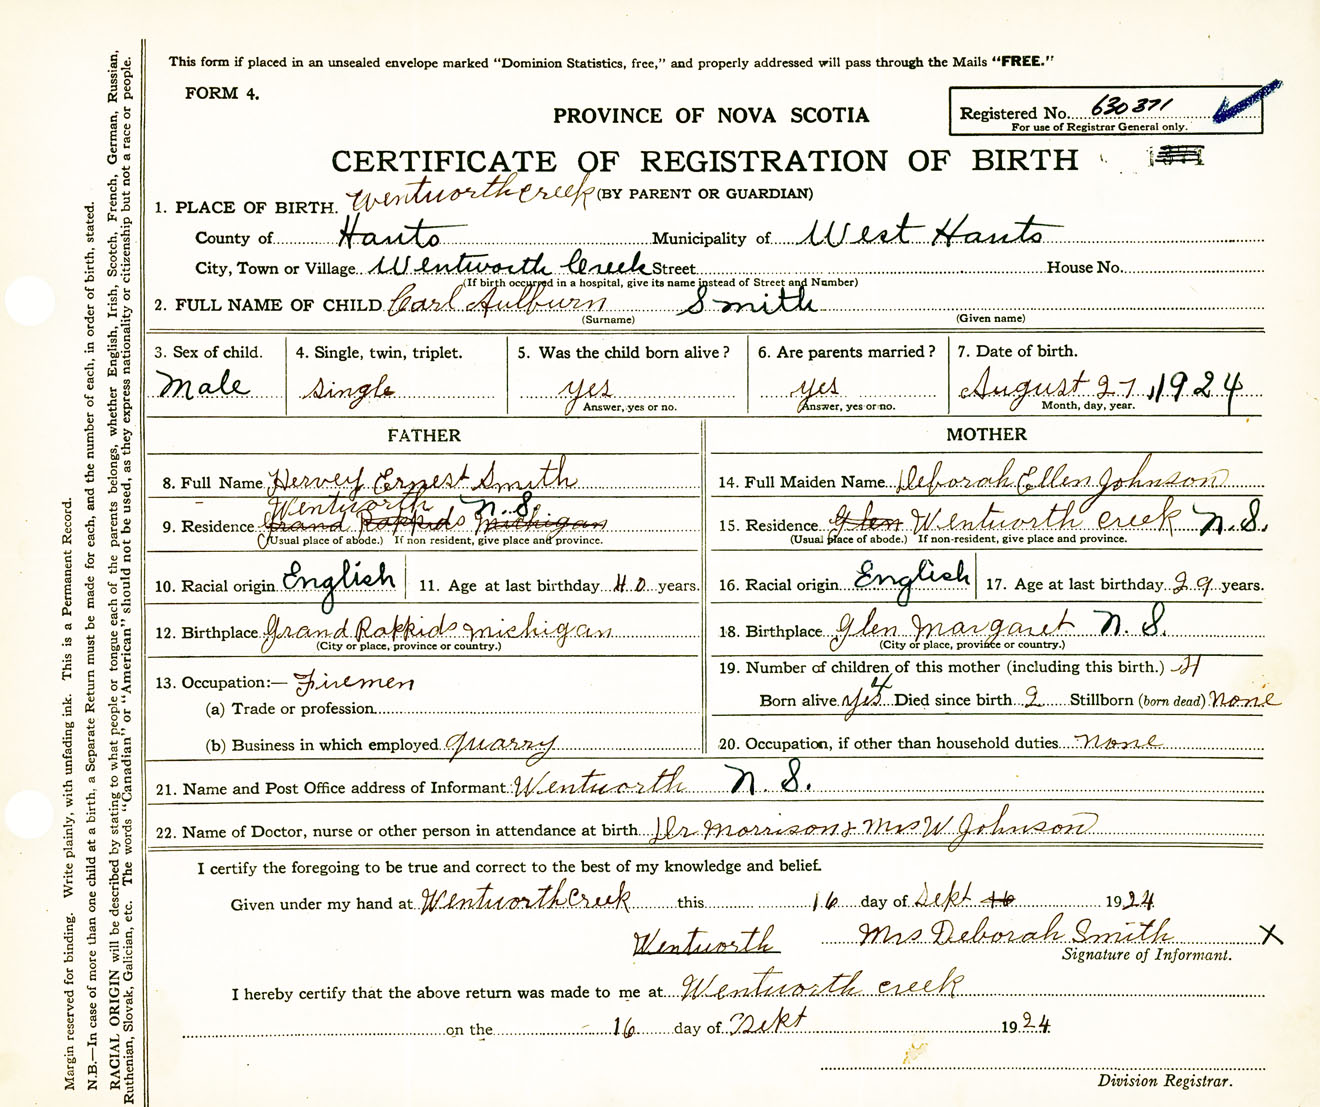 This form if placed in an unsealed envelope marked "Dominion Statistics, free," and properly addressed will pass through the Mails "FREE."
FORM 4.
PROVINCE OF NOVA SCOTIA
Registered No. 630371
For use of Registrar General only.
CERTIFICATE OF REGISTRATION OF BIRTH
(BY PARENT OR GUARDIAN)
1. PLACE OF BIRTH. Wentworth creek
County of Hants Municipality of West Hants
City, Town or Village Wentworth Creek Street House No.
(If birth occurred in a hospital, give its name instead of Street and Number)
2. FULL NAME OF CHILD Carl Aulburn Smith
(Surname) (Given name)
3. Sex of child. 4. Single, twin, triplet. 5. Was the child born alive? 6. Are parents married? 7. Date of birth.
Male single yes yes August 27, 1924
Answer, yes or no. Answer, yes or no. Month, day, year.
FATHER MOTHER
8. Full Name Hervey Ernest Smith 14. Full Maiden Name Deborah Ellen Johnson
Wentworth N. S.
9. Residence Grand Rapkids Michigan 15. Residence Glen Wentworth creek N. S.
(Usual place of abode.) If non resident, give place and province. (Usual place of abode.) If non-resident, give place and province.
10. Racial origin English 11. Age at last birthday 40 years. 16. Racial origin English 17. Age at last birthday 29 years.
12. Birthplace Grand Rapkids Michigan 18. Birthplace Glen Margaret N. S.
(City or place, province or country.) (City or place, province or country.)
13. Occupation:— Firemen 19. Number of children of this mother (including this birth.) 4
(a) Trade or profession Born alive yes 4 Died since birth 2 Stillborn (born dead) None
(b) Business in which employed Quarry 20. Occupation, if other than household duties none
21. Name and Post Office address of Informant Wentworth N. S.
22. Name of Doctor, nurse or other person in attendance at birth Dr Morrison & Mrs W Johnson
I certify the foregoing to be true and correct to the best of my knowledge and belief.
Given under my hand at Wentworth Creek this 16 day of Sekt 16 1924
Wentworth Mrs Deborah Smith X
Signature of Informant.
I hereby certify that the above return was made to me at Wentworth creek
on the 16 day of Sekt 1924
Division Registrar.
Margin reserved for binding. Write plainly, with unfading ink. This is a Permanent Record.
N.B.—In case of more than one child at a birth, a Separate Return must be made for each, and the number of each, in order of birth, stated.
RACIAL ORIGIN will be described by stating to what people or tongue each of the parents belongs, whether English, Irish, Scotch, French, German, Russian,
Ruthenian, Slovak, Galician, etc. The words "Canadian" or "American" should not be used, as they express nationality or citizenship but not a race or people.